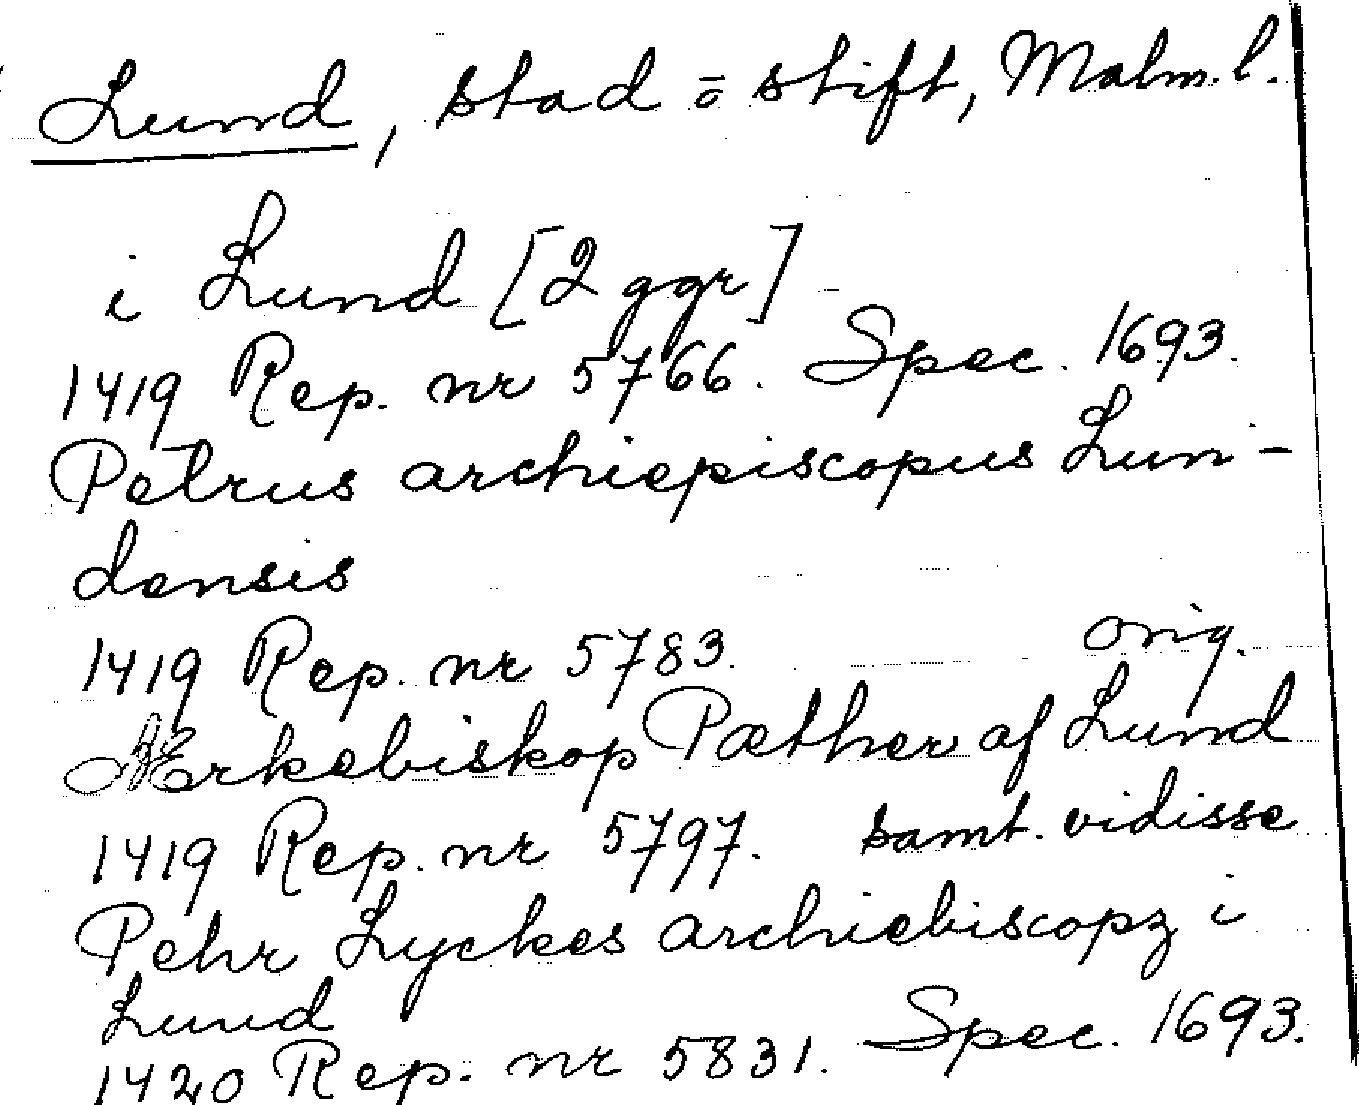 Lund, stad o stift, Malm. l.
i Lund [2 ggr]
1419 Rep. nr 5766. Spec. 1693.
Petrus archiepiscopus Lun-
densis
1419 Rep. nr 5783. orig.
Ærkebiskop Pæther af Lund
1419 Rep. nr 5797. samt. vidisse
Pehr Lyckes archiebiscopz i
Lund
1420 Rep. nr 5831. Spec. 1693.